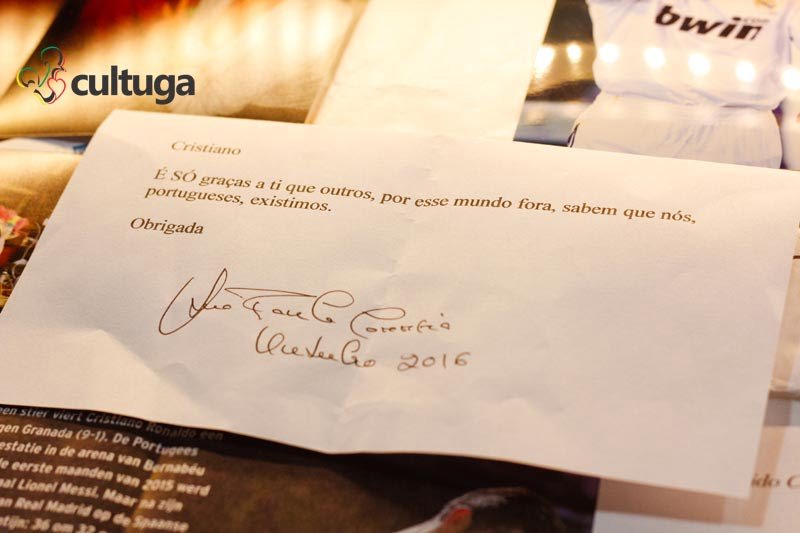 cultuga
bwin
.com
Cristiano
É SÓ graças a ti que outros, por esse mundo fora, sabem que nós,
portugueses, existimos.
Obrigada
2016
een stier viert Cristiano Ronaldo een
gen Granada (9-1). De Portugees
estatie in de arena van Bernabéu
le eerste maanden van 2015 werd
aal Lionel Messi. Maar na zijn
an Real Madrid op de Spaanse
36 om 32